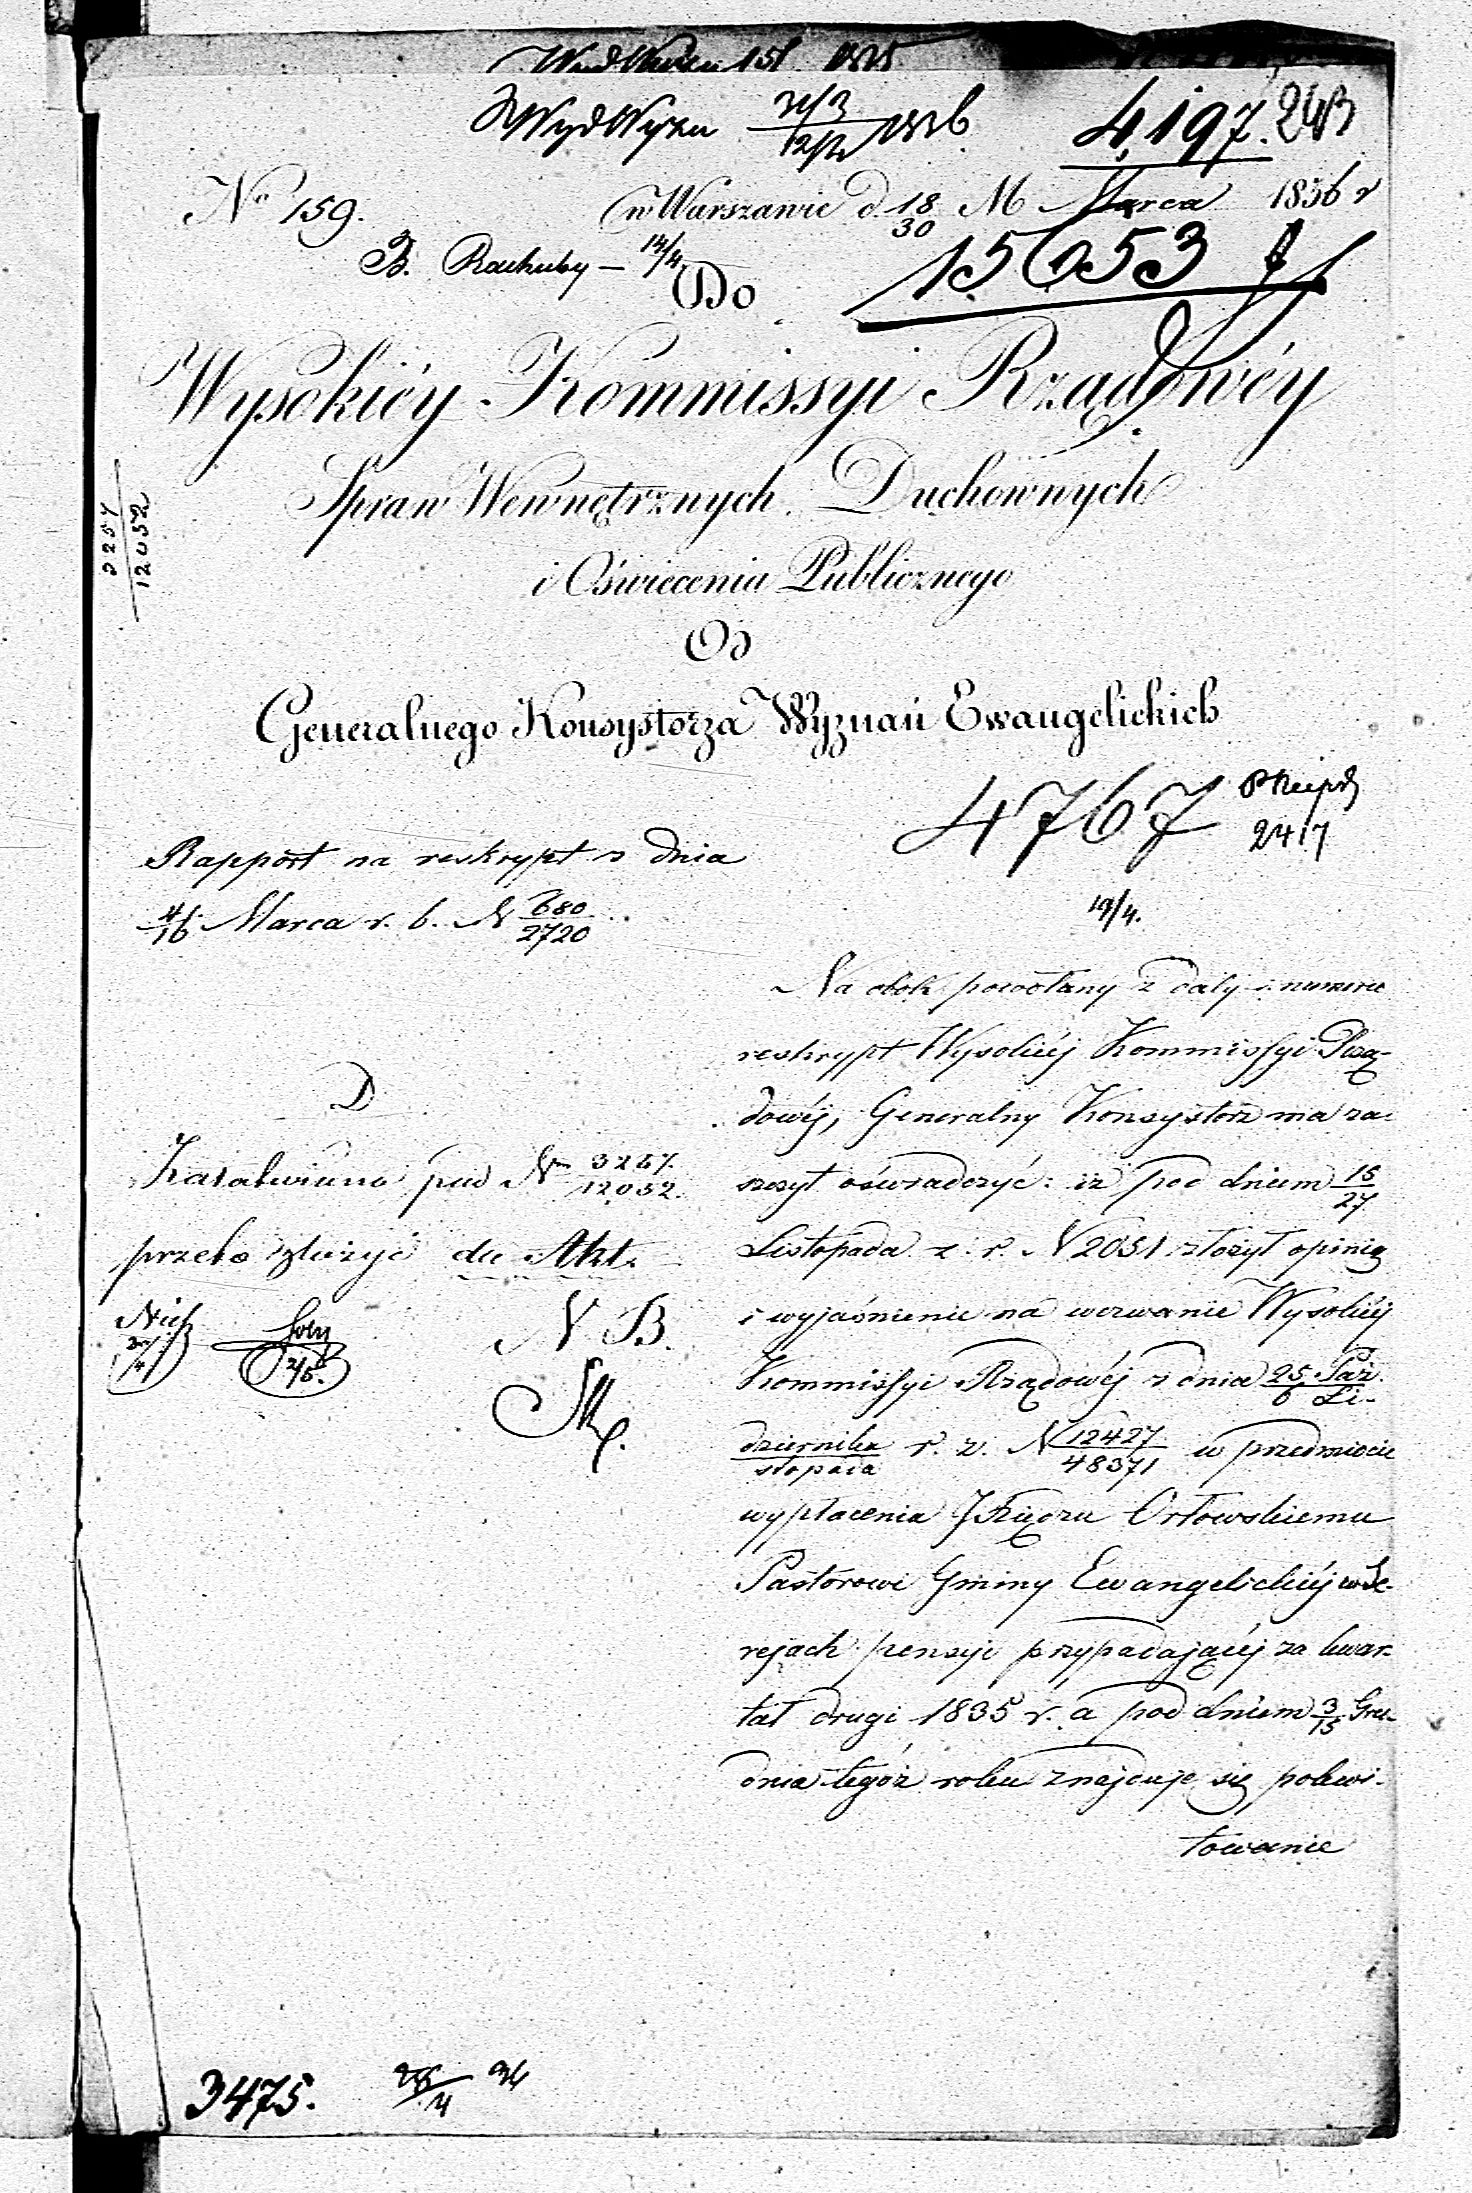 4197. 243
No 159.
w Warszawie d. 18/30 M Marca 1836 r
B. Rachuby – 14/4
15653
Do
Wysokiéy Kommissyi Rządowéy
Spraw Wewnętrznych Duchownych
i Oświecenia Publicznego
Od
Generalnego Konsystorza Wyznań Ewangelickich
3257
12052
4767
2417
19/4.
Rapport na reskrypt z dnia
4/16 Marca r. b. N 680/2720
D
Załatwiono pod Nm 3257/12052
przeto złożyć do Akt.
N B.
Na obok powołany z daty i numeru
reskrypt Wysokiéj Kommissyi Rzą-
dowéj, Generalny Konsystorz ma za-
szczyt oświadczyć: iż pod dniem 15/27
Listopada z. r. N 2051 złożył opinię
i wyjaśnienie na wezwanie Wysokiéj
Kommissyi Rządowéj z dnia 25 Paź-/6 Li-
dziernika/stopada r. z. N 12427/48371 w przedmiocie
wypłacenia JXiędzu Orłowskiemu
Pastorowi Gminy Ewangelickiéj w Se-
rejach pensyi przypadającéj za kwar-
tał drugi 1835 r. a pod dniem 3/15 Gru-
dnia tegóż roku znajduje się pokwi-
towanie
3475.